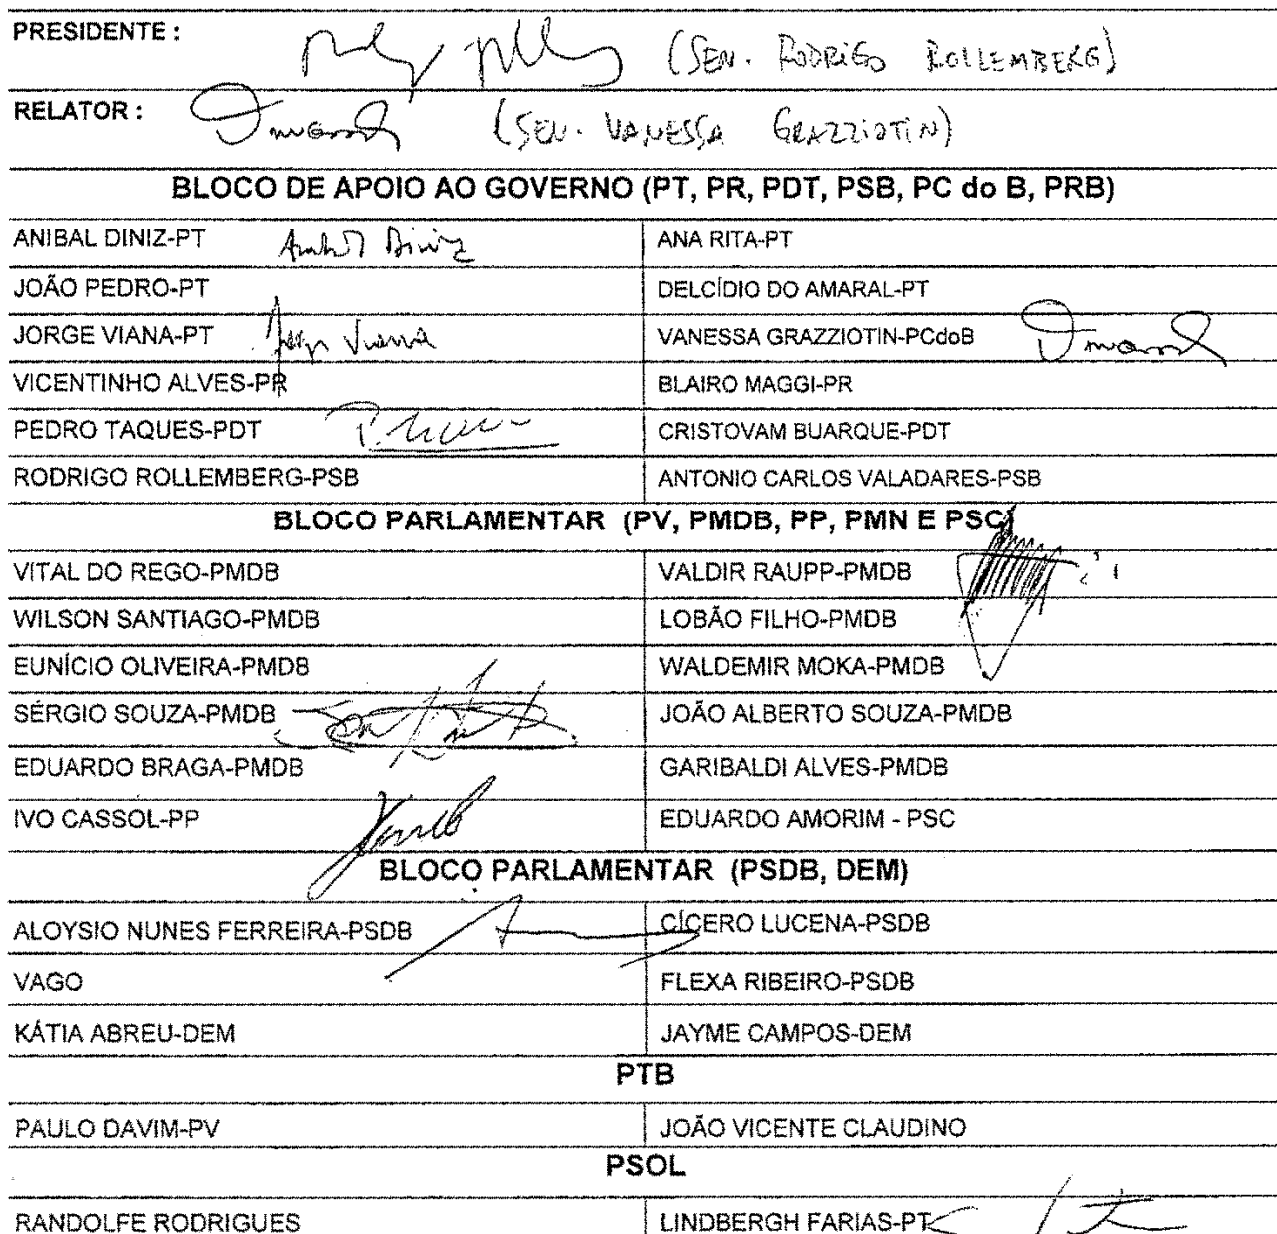 PRESIDENTE : (SEN. RODRIGO ROLLEMBERG)
RELATOR : (SEN. VANESSA GRAZZIOTIN)
BLOCO DE APOIO AO GOVERNO (PT, PR, PDT, PSB, PC do B, PRB)
ANIBAL DINIZ-PT Anibal Diniz ANA RITA-PT
JOÃO PEDRO-PT DELCÍDIO DO AMARAL-PT
JORGE VIANA-PT Jorge Viana VANESSA GRAZZIOTIN-PCdoB
VICENTINHO ALVES-PR BLAIRO MAGGI-PR
PEDRO TAQUES-PDT CRISTOVAM BUARQUE-PDT
RODRIGO ROLLEMBERG-PSB ANTONIO CARLOS VALADARES-PSB
BLOCO PARLAMENTAR (PV, PMDB, PP, PMN E PSC)
VITAL DO REGO-PMDB VALDIR RAUPP-PMDB
WILSON SANTIAGO-PMDB LOBÃO FILHO-PMDB
EUNÍCIO OLIVEIRA-PMDB WALDEMIR MOKA-PMDB
SÉRGIO SOUZA-PMDB JOÃO ALBERTO SOUZA-PMDB
EDUARDO BRAGA-PMDB GARIBALDI ALVES-PMDB
IVO CASSOL-PP EDUARDO AMORIM - PSC
BLOCO PARLAMENTAR (PSDB, DEM)
ALOYSIO NUNES FERREIRA-PSDB CÍCERO LUCENA-PSDB
VAGO FLEXA RIBEIRO-PSDB
KÁTIA ABREU-DEM JAYME CAMPOS-DEM
PTB
PAULO DAVIM-PV JOÃO VICENTE CLAUDINO
PSOL
RANDOLFE RODRIGUES LINDBERGH FARIAS-PT